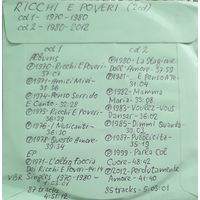 RICCHI E POVERI (2cd)
cd 1 - 1970-1980
cd 2 - 1980-2012
cd 1
Albums
1970-Ricchi E Poveri-
37:01
1971-Amici Miei-
31:36
1974-Penso Sorrido
E Canto-32:28
1975-Ricchi E Poveri-
1976-I Musicanti-
36:30
1978-Questo Amore-
39:54
EP
1971-L'altra Faccia
Dei Ricchi E Poveri-
VBR Singles 1970-1980-
87 tracks-
cd 2
1980-La Stagione
Dell'Amore-37:59
1981-E Penso A Te-
31:04
1982-Mamma
Maria-33:08
1983-Voulez-Vous
Danser-36:02
1985-Dimmi Quando-
1987-Pubblicità-
35:19
1999-Parla Col
Cuore-48:42
2012-Perdutamente
Amore-
85 tracks-5:03:01